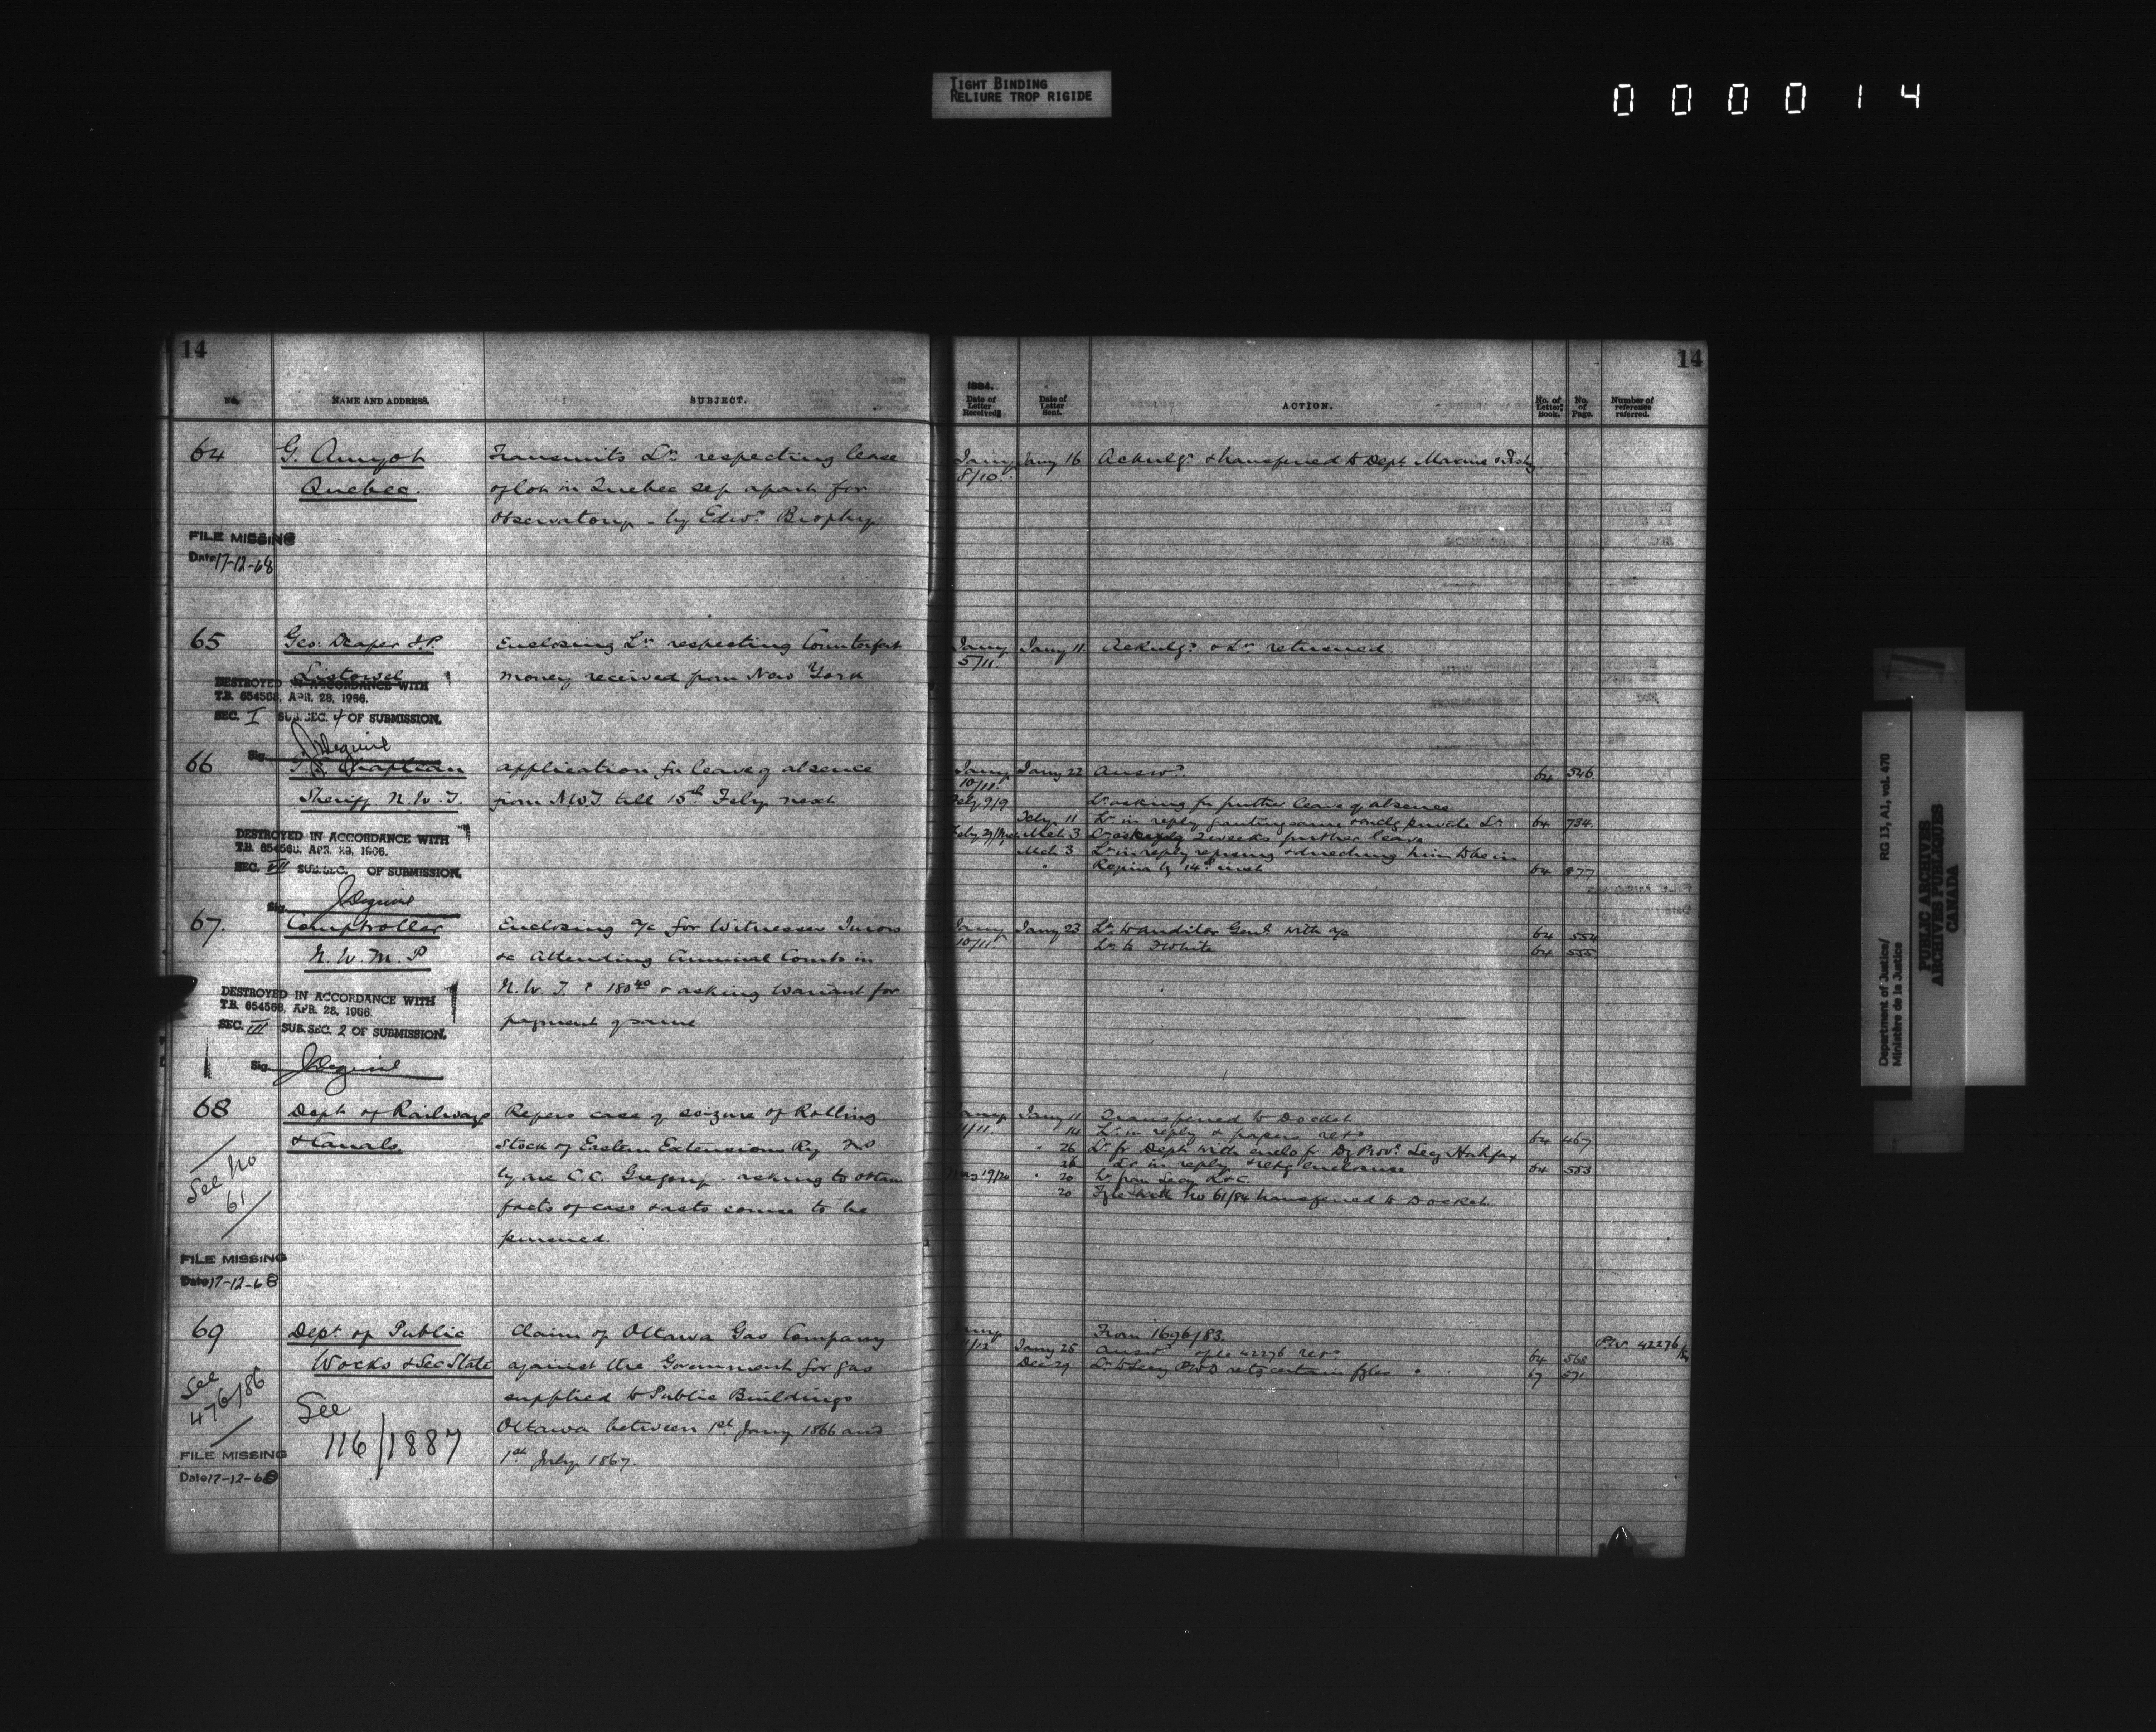 TIGHT BINDING
RELIURE TROP RIGIDE
000014
14
No.
NAME AND ADDRESS.
SUBJECT.
64
G. Amyot
Quebec.
Transmits Lr. respecting lease
of lot in Quebec set apart for
Observatory - by Edwd. Brophy
FILE MISSING
Date 17-12-68
65
Geo. Draper J.P.
Listowel
Enclosing Lr. respecting Counterfeit
money received from New York
DESTROYED IN ACCORDANCE WITH
T.B. 654568, APR. 28, 1966.
SEC. I SUB. SEC. 4 OF SUBMISSION.
Sig.
66
Chapleau
Sheriff N.W.T.
application for leave of absence
from NWT till 15th Feby next
DESTROYED IN ACCORDANCE WITH
T.B. 654568, APR. 28, 1966.
SEC. VII SUB. SEC. OF SUBMISSION.
Sig.
67.
Comptroller
N.W.M.P
Enclosing a/c for Witnesses Jurors
&c Attending Criminal Courts in
N.W.T. 180 40 & asking Warrant for
payment of same
DESTROYED IN ACCORDANCE WITH
T.B. 654568, APR. 28, 1966.
SEC. III SUB. SEC. 2 OF SUBMISSION.
Sig.
68
Dept of Railways
& Canals.
Refers case of seizure of Rolling
Stock of Eastern Extensions Ry
C.C. Gregory. asking to obtain
facts of case & as to course to be
pursued.
See No
61
FILE MISSING
Date 17-12-68
69
Dept. of Public
Works & Sec State
Claim of Ottawa Gas Company
against the Government for gas
supplied to Public Buildings
Ottawa between 1st Jany 1866 and
1st July 1867.
See
476/86
See
116/1887
FILE MISSING
Date 17-12-68
14
1884.
Date of Letter Received.
Date of Letter Sent.
ACTION.
No. of Letter Book.
No. of Page.
Number of reference referred.
Jany 8/10 Jany 16 Acknlgd. & transferred to Dept Marine & Fishy
Jany 5/11 Jany 11 Acknlgd. & Lr. returned.
Jany 10/11 Jany 22 Answd. 64 546
Feby 9/9 Lr. asking for further leave of absence
Feby 11 Lr. in reply granting same & ackldg private Lr. 64 734
Mch 3 Lr. asking 2 weeks further leave
Mch 3 Lr. in reply refusing & directing him to be in
Regina by 14th inst 64 877
Jany 10/11 Jany 23 Lr. to Auditor Genl. with a/c 64 554
Lr. to F White 64 555
Jany 11/11 Jany 11 Transferred to Docket
14 Lr. in reply & papers retd 64 467
" 26 Lr. fr Dept with enclo fr Dy Provl. Secy Halifax
26 Lr. in reply & retg enclosure 64 583
19/20 " 20 Lr. from Secy R & C
20 Fyle with No 61/84 transferred to Docket
Jany 11/12 From 1696/83.
Jany 25 Answd. fyle 42276 retd 64 568
Dec 29 Lr. to Secy PWD retg certain fyles 67 571
P.W. 42276/84
Department of Justice/
Ministère de la Justice
RG 13, A1, vol. 470
PUBLIC ARCHIVES
ARCHIVES PUBLIQUES
CANADA